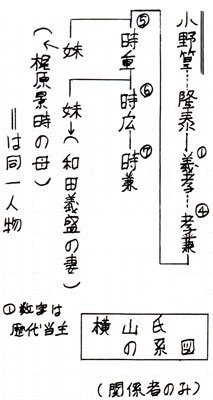 小野篁…隆泰―義孝…孝兼
①
④
⑤時重―⑥時広―⑦時兼
妹
(←梶原景時の母)
妹→(和田義盛の妻)
=は同一人物
①数字は
歴代当主
横山氏
の系図
(関係者のみ)